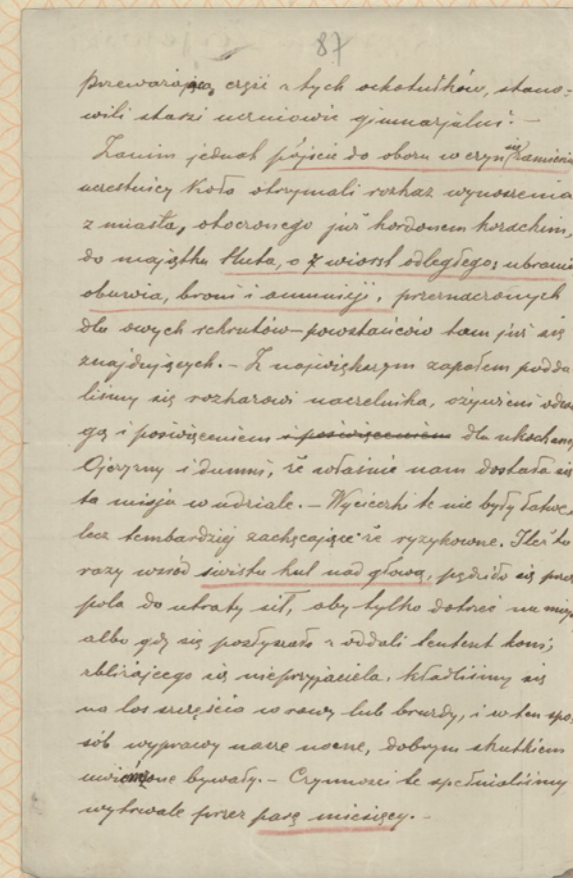 87
przeważającą część z tych ochotników, stano-
wili starsi uczniowie gimnazjalni. -
Zanim jednak pójście do obozu w czyn się zamieni
uczestnicy Koła otrzymali rozkaz wynoszenia
z miasta, otoczonego już kordonem kozackim,
do majątku Huta, o 7 wiorst odległego; ubrania
obuwia, broni i amunicji, przeznaczonych
dla owych rekrutów - powstańców tam już się
znajdujących. - Z największym zapałem podda
liśmy się rozkazowi naczelnika, ożywieni odwa
gą i poświęceniem i poświęceniem dla ukochanej
Ojczyzny i dumni, że właśnie nam dostała się
ta misja w udziale. - Wycieczki te nie były łatwe
lecz tembardziej zachęcające że ryzykowne. Ileż to
razy wśród świstu kul nad głową, pędziło się przez
pola do utraty sił, aby tylko dotrzeć na miejs
albo gdy się posłyszało z oddali tentent koni,
zbliżającego się nieprzyjaciela, kładliśmy się
na los szczęścia w rowy lub bruzdy, i w ten spo-
sób wyprawy nasze nocne, dobrym skutkiem
uwieńczone bywały. - Czynności te spełnialiśmy
wytrwale przez parę miesięcy. -